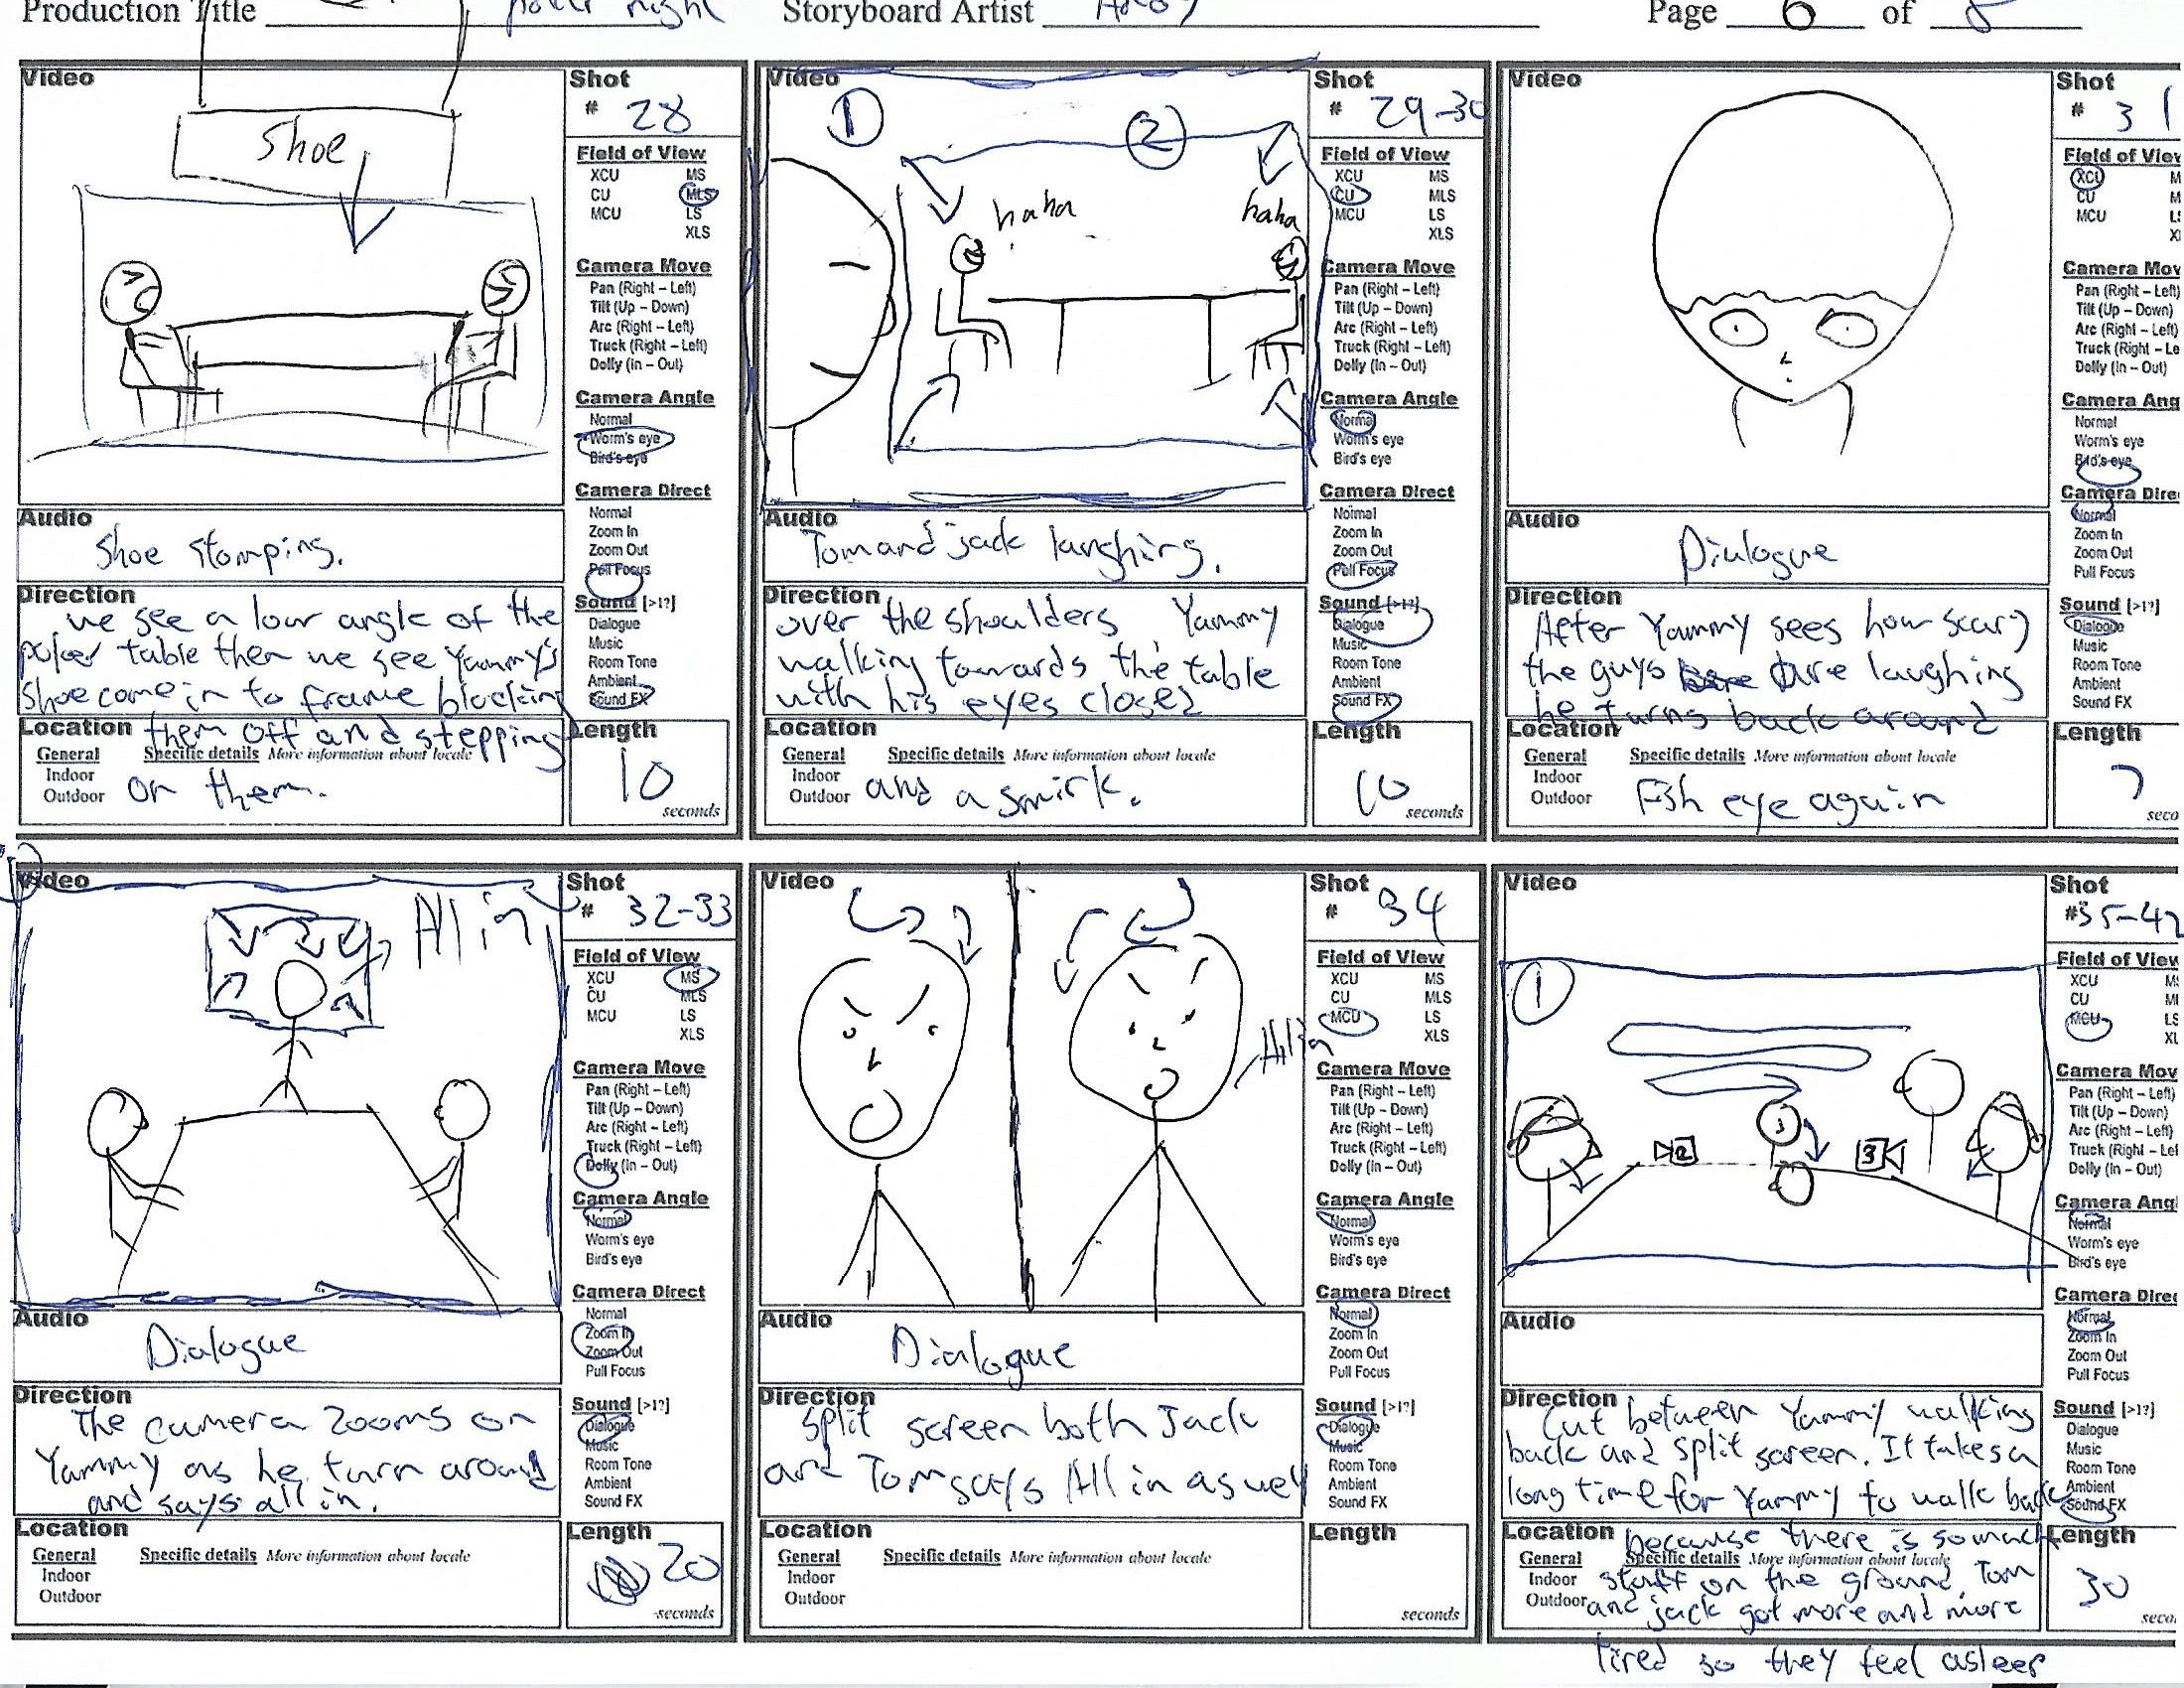 Production Title Poker night Storyboard Artist Page 6 of
Video
Shoe
Shot
# 28
Field of View
XCU MS
CU MLS
MCU LS
XLS
Camera Move
Pan (Right – Left)
Tilt (Up – Down)
Arc (Right – Left)
Truck (Right – Left)
Dolly (In – Out)
Camera Angle
Normal
Worm's eye
Bird's eye
Camera Direct
Normal
Zoom In
Zoom Out
Pull Focus
Sound [>1?]
Dialogue
Music
Room Tone
Ambient
Sound FX
Audio
Shoe stomping.
Direction
we see a low angle of the
poker table then we see Yammy's
shoe come in to frame blocking
them off and stepping
on them.
Location
General Specific details More information about locale
Indoor
Outdoor
Length
10
seconds
Video
1
2
haha haha
Shot
# 29-30
Field of View
XCU MS
CU MLS
MCU LS
XLS
Camera Move
Pan (Right – Left)
Tilt (Up – Down)
Arc (Right – Left)
Truck (Right – Left)
Dolly (In – Out)
Camera Angle
Normal
Worm's eye
Bird's eye
Camera Direct
Normal
Zoom In
Zoom Out
Pull Focus
Sound [>1?]
Dialogue
Music
Room Tone
Ambient
Sound FX
Audio
Tom and jack laughing.
Direction
over the shoulders Yammy
walking towards the table
with his eyes closed
and a smirk.
Location
General Specific details More information about locale
Indoor
Outdoor
Length
10
seconds
Video
Shot
# 31
Field of View
XCU M
CU M
MCU L
X
Camera Mov
Pan (Right – Left)
Tilt (Up – Down)
Arc (Right – Left)
Truck (Right – Le
Dolly (In – Out)
Camera Ang
Normal
Worm's eye
Bird's eye
Camera Dire
Normal
Zoom In
Zoom Out
Pull Focus
Sound [>1?]
Dialogue
Music
Room Tone
Ambient
Sound FX
Audio
Dialogue
Direction
After Yammy sees how scary
the guys are laughing
he turns back around
Location
General Specific details More information about locale
Indoor
Outdoor
Fish eye again
Length
7
seco
Video
All in
Shot
# 32-33
Field of View
XCU MS
CU MLS
MCU LS
XLS
Camera Move
Pan (Right – Left)
Tilt (Up – Down)
Arc (Right – Left)
Truck (Right – Left)
Dolly (In – Out)
Camera Angle
Normal
Worm's eye
Bird's eye
Camera Direct
Normal
Zoom In
Zoom Out
Pull Focus
Sound [>1?]
Dialogue
Music
Room Tone
Ambient
Sound FX
Audio
Dialogue
Direction
The camera zooms on
Yammy as he turn around
and says all in.
Location
General Specific details More information about locale
Indoor
Outdoor
Length
20
seconds
Video
All in
Shot
# 34
Field of View
XCU MS
CU MLS
MCU LS
XLS
Camera Move
Pan (Right – Left)
Tilt (Up – Down)
Arc (Right – Left)
Truck (Right – Left)
Dolly (In – Out)
Camera Angle
Normal
Worm's eye
Bird's eye
Camera Direct
Normal
Zoom In
Zoom Out
Pull Focus
Sound [>1?]
Dialogue
Music
Room Tone
Ambient
Sound FX
Audio
Dialogue
Direction
split screen both Jack
and Tom says All in as well
Location
General Specific details More information about locale
Indoor
Outdoor
Length
seconds
Video
1
2 3
Shot
#35-42
Field of View
XCU M
CU M
MCU LS
XL
Camera Mov
Pan (Right – Left)
Tilt (Up – Down)
Arc (Right – Left)
Truck (Right – Lef
Dolly (In – Out)
Camera Ang
Normal
Worm's eye
Bird's eye
Camera Direc
Normal
Zoom In
Zoom Out
Pull Focus
Sound [>1?]
Dialogue
Music
Room Tone
Ambient
Sound FX
Audio
Direction
Cut between Yammy walking
back and split screen. It takes a
long time for Yammy to walk back
because there is so much
stuff on the ground, Tom
and jack got more and more
tired so they feel asleep
Location
General Specific details More information about locale
Indoor
Outdoor
Length
30
seco